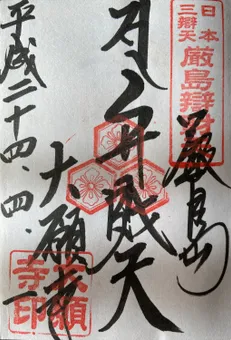 日本
三辯天
厳島辯財
厳島山
弁戝天
大願寺
平成二十四.四.
大願
寺印